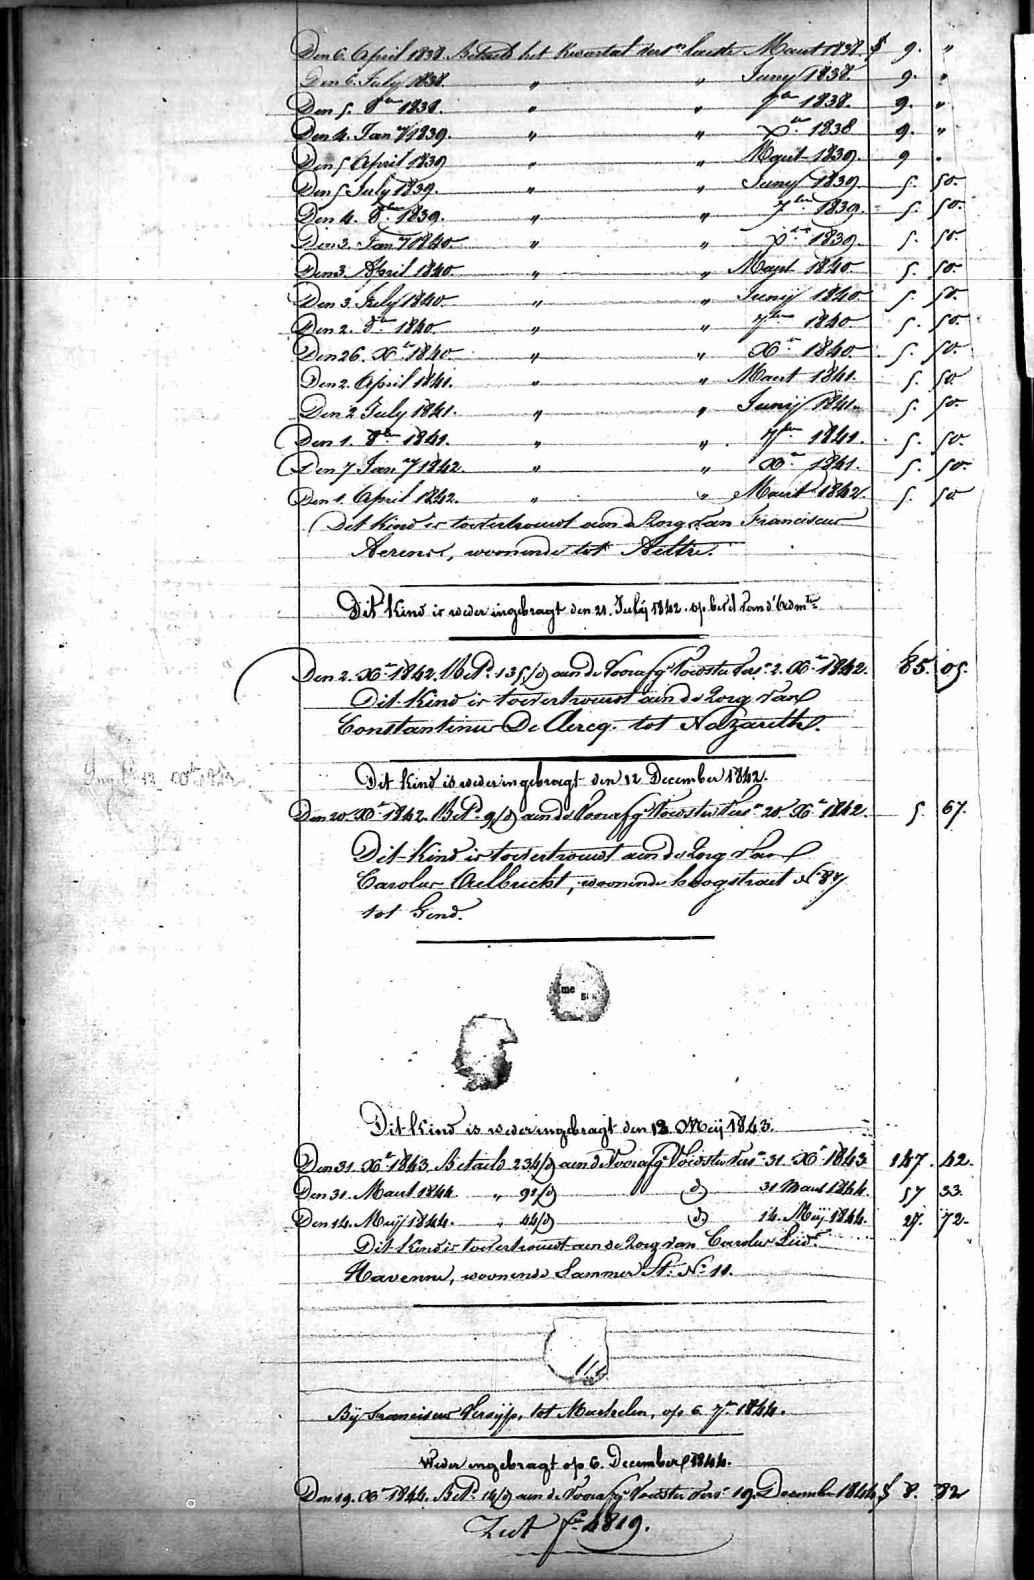 Den 6. April 1838. Betaeld het kwartael vers.n laeste Maert 1838. f 9. "
Den 6. July 1838. " " Juny 1838. 9. "
Den 5. 8.bre 1838. " " 7.bre 1838. 9. "
Den 4. Jan.y 1839. " " X.bre 1838 9. "
Den 5 April 1839 " " Maert 1839. 9 "
Den 5 July 1839. " " Juny 1839. 5. 50.
Den 4. 8.bre 1839. " " 7.bre 1839. 5. 50.
Den 3. Jan.y 1840. " " X.bre 1839. 5. 50.
Den 3. April 1840. " " Maert 1840. 5. 50.
Den 3. July 1840. " " Junij 1840. 5. 50.
Den 2. 8.bre 1840. " " 7.bre 1840 5. 50.
Den 26. X.bre 1840. " " X.bre 1840. 5. 50.
Den 2. April 1841. " " Maert 1841. 5. 50.
Den 2 July 1841. " " Junij 1841. 5. 50.
Den 1. 8.bre 1841. " " 7.bre 1841. 5. 50.
Den 7 Jan.y 1842. " " X.bre 1841. 5. 50.
Den 1. April 1842. " " Maert 1842. 5. 50
Dit Kind is toevertrouwd aan de Zorg van Franciscus
Aerens, woonende tot Aeltre.
Dit Kind is weder ingebragt den 21. July 1842. op bevel van d'
Den 2. X.bre 1842. Bet.d 135/d aan de Voorafg.e Voedster vers.n 2. X.bre 1842. 85. 05.
Dit Kind is toevertrouwd aan de Zorg van
Constantinus De Clercq. tot Nazareth.
Dit Kind is weder ingebragt den 12 December 1842.
Den 20 X.bre 1842. Bet.d 9/d aan de Voorafg.e Voedster vers.n 20 X.bre 1842. 5. 67.
Dit Kind is toevertrouwd aan de Zorg van
Carolus Aelbrecht, woonende hoogstraet N.o 87
tot Gend.
Dit Kind is weder ingebragt den 13 Meij 1843.
Den 31. X.bre 1843. Betaeld 234/d aan de Voorafg.e Voedster vers.n 31. X.bre 1843 147. 42.
Den 31. Maert 1844. " 91/d d.o 31 Maert 1844. 57 33.
Den 14. Meij 1844. " 44/d d.o 14. Meij 1844. 27. 72.
Dit Kind is toevertrouwd aan de Zorg van Carolus Lud.s
Havenne, woonende Lammer St. N.o 11.
Bij Franciscus Versijp, tot Machelen, op 6. 7.bre 1844.
Weder ingebragt op 6. December 1844.
Den 19. X.bre 1844. Bet.d 14/d aan de Voorafg.e Voedster vers.n 19. December 1844 f 8. 82
Ziet f.o 4819.